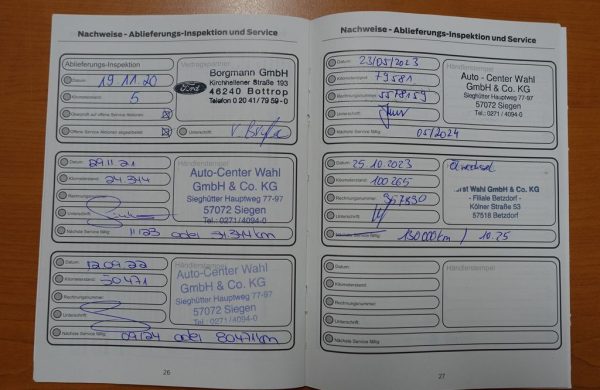 Nachweise - Ablieferungs-Inspektion und Service
Ablieferungs-Inspektion
Datum: 19.11.20
Kilometerstand: 5
Überprüft auf offene Service-Aktionen
Offene Service-Aktionen abgearbeitet
Vertragspartner
Ford
Borgmann GmbH
Kirchhellener Straße 193
46240 Bottrop
Telefon 0 20 41/79 59-0
Unterschrift:
Datum: 29.11.21
Kilometerstand: 24.314
Rechnungsnummer:
Unterschrift:
Nächste Service fällig: 11/23 oder 54.314 km
Händlerstempel
Auto-Center Wahl
GmbH & Co. KG
Sieghütter Hauptweg 77-97
57072 Siegen
Tel.: 0271/4094-0
Datum: 12.09.22
Kilometerstand: 50471
Rechnungsnummer:
Unterschrift:
Nächste Service fällig: 09/24 oder 80471 km
Händlerstempel
Auto-Center Wahl
GmbH & Co. KG
Sieghütter Hauptweg 77-97
57072 Siegen
Tel.: 0271/4094-0
26
Nachweise - Ablieferungs-Inspektion und Service
Datum: 23/05/2023
Kilometerstand: 79581
Rechnungsnummer: 5578159
Unterschrift:
Nächste Service fällig: 05/2024
Händlerstempel
Auto - Center Wahl
GmbH & Co. KG
Sieghütter Hauptweg 77-97
57072 Siegen
Tel.: 0271/ 4094-0
Datum: 25.10.2023
Kilometerstand: 100265
Rechnungsnummer: 957830
Unterschrift:
Nächste Service fällig: 130000 km / 10.25
Ölwechsel
Wahl GmbH & Co. KG
- Filiale Betzdorf -
Kölner Straße 53
57518 Betzdorf
Datum:
Kilometerstand:
Rechnungsnummer:
Unterschrift:
Nächste Service fällig:
Händlerstempel
27